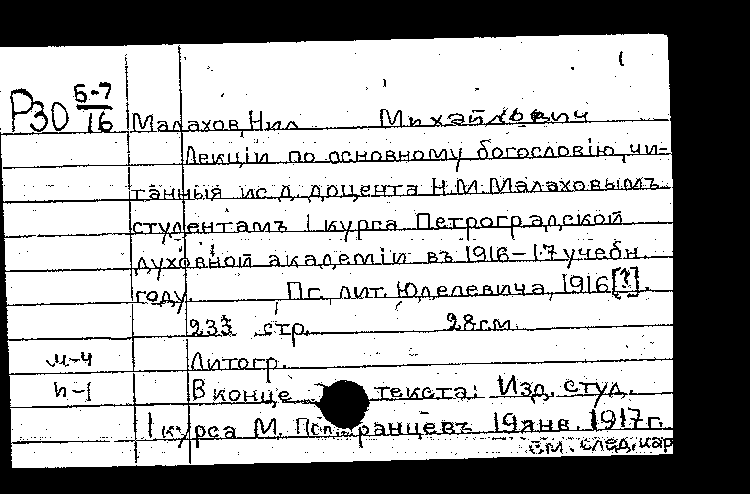 Р30 5-7/16
Малахов, Нил Михайлович
Лекціи по основному богословію, чи-
танныя ис.д. доцента Н.М. Малаховымъ
студентамъ I курса Петроградской
духовной академіи въ 1916-17 учебн.
году. Пг. лит. Юделевича, 1916[?].
233 стр. 28см.
м-ч Литогр.
h-1 В конце текста: Изд. студ.
I курса М. 19 янв. 1917 г.
см. след. кар